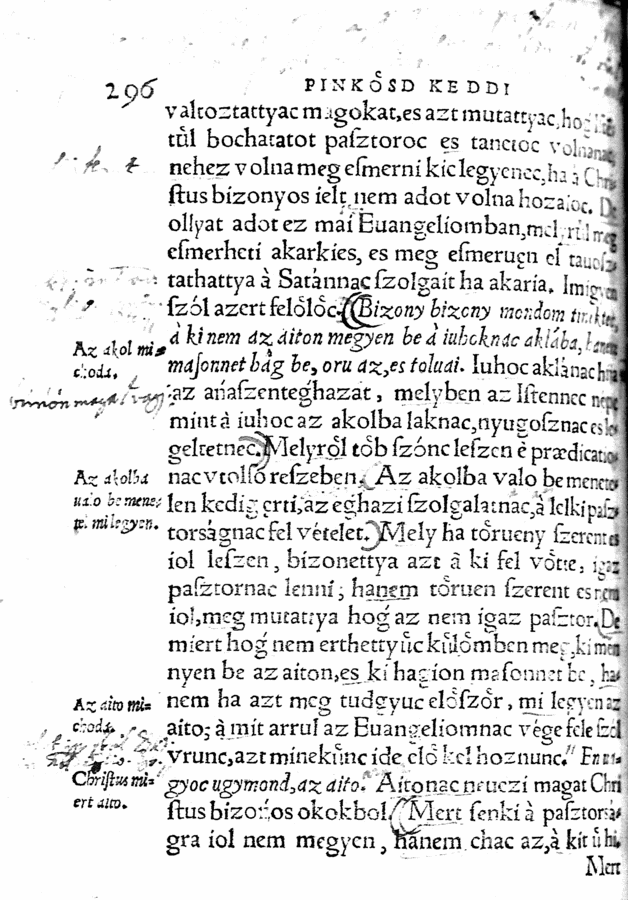 296 PINKO̊SD KEDDI
valtoztattyac magokat, es azt mutattyac, hog
tu̇l bochatatot paſztoroc es tanetoc volnanac,
nehez volna meg eſmerni kic legyenec, ha à Chri
ſtus bizonyos ielt nem adot volna hozaioc. De
ollyat adot ez mái Euangeliomban, melyru̇l meg
eſmerheti akarkies, es meg eſmeruen el tauoſz
tathattya à Satánnac ſzolgait ha akaria. Imigyen
ſzól azert felőlőc. Bizony bizony mondom tinektec,
à ki nem az aiton megyen be à iuhoknac aklába, hanem
maſonnet hág be, oru az, es toluai. Iuhoc aklánac hiia
az ańaſzenteghazat, melyben az Iſtennec nepe
mint à iuhoc az akolba laknac, nyugoſznac es le-
geltetnec. Melyről tőb ſzónc leſzen è prædicatio
nac vtolſó reſzeben. Az akolba valo be menete
len kedig erti, az eghazi ſzolgalatnac, à lelki paſz-
torságnac fel vételet. Mely ha tőrueny ſzerent es
iol leſzen, bizonettya azt à ki fel vőtte, igaz
paſztornac lenni; hanem tőruen ſzerent es nem
iol, meg mutattya hog az nem igaz paſztor. De
miert hog nem erthettyu̇c ku̇lőmben meg, ki men
nyen be az aiton, es ki hagion maſonnet be, ha-
nem ha azt meg tudgyuc előſzőr, mi legyen az
aito; à mit arrul az Euangeliomnac vége fele ſzól
Vrunc, azt mineku̇nc ide elő kel hoznunc. En va-
gyoc ugymond, az aito. Aitonac neuezi magat Chri
ſtus bizońos okokbol. Mert ſenki à paſztorsá-
gra iol nem megyen, hanem chac az, à kit u̇ hi.
Mert
Az akol mi
choda.
Az akolba
ualo bemene-
tel mi legyen.
Az aito mi-
choda.
Chriſtus mi-
ert aito.